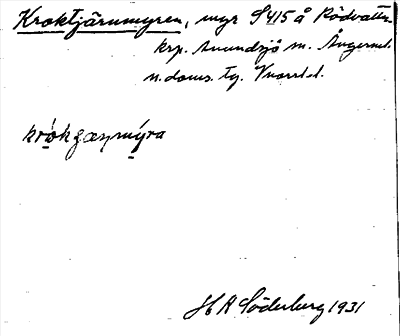 Kroktjärnmyren, myr S 415 å Rödvattn.
krp. Anundsjö sn. Ångerml.
n. doms. tg. Vnorrl. l.
krókʒæɳmýra
H A Söderberg 1931